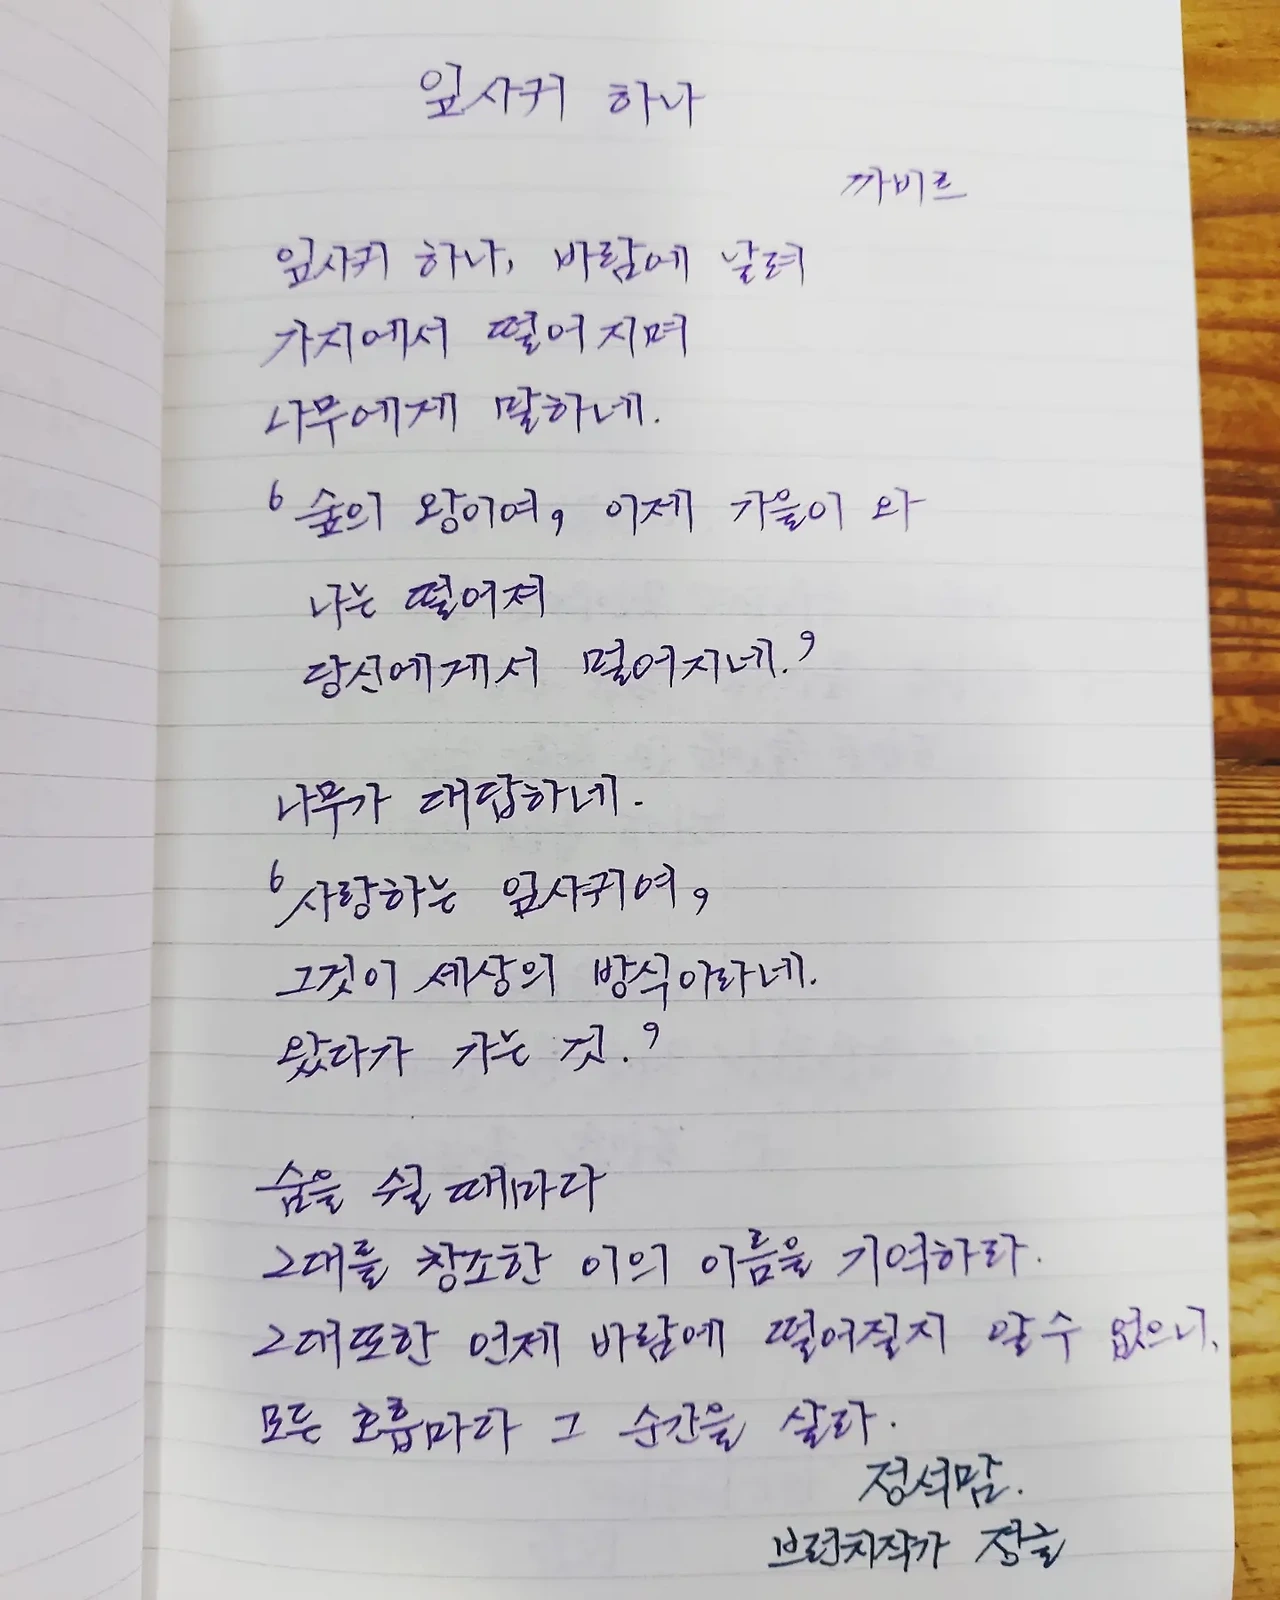 잎사귀 하나
까비르
잎사귀 하나, 바람에 날려
가지에서 떨어지며
나무에게 말하네.
'숲의 왕이여, 이제 가을이 와
나는 떨어져
당신에게서 멀어지네.'
나무가 대답하네.
'사랑하는 잎사귀여,
그것이 세상의 방식이라네.
왔다가 가는 것.'
숨을 쉴 때마다
그대를 창조한 이의 이름을 기억하라.
그대 또한 언제 바람에 떨어질지 알 수 없으니,
모든 호흡마다 그 순간을 살라.
정석맘.
브런치작가 정늘